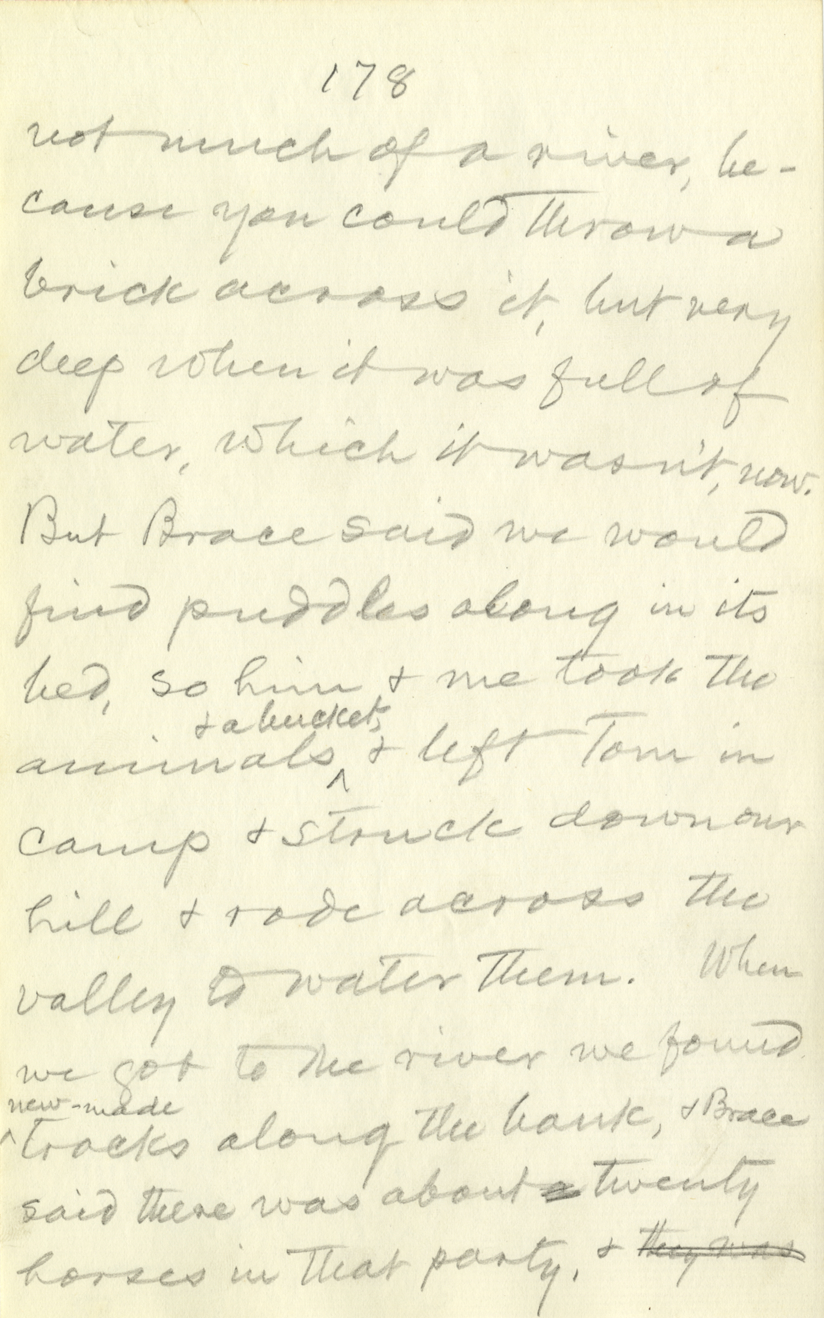 178
not much of a river, be-
cause you could throw a
brick across it, but very
deep when it was full of
water, which it wasn't, now.
But Brace said we would
find puddles along in its
bed, so him & me took the
& a bucket,
animals ^ & left Tom in
camp & struck down our
hill & rode across the
valley to water them. When
we got to the river we found
new-made
^ tracks along the bank, & Brace
said there was about twenty
horses in that party, & they was